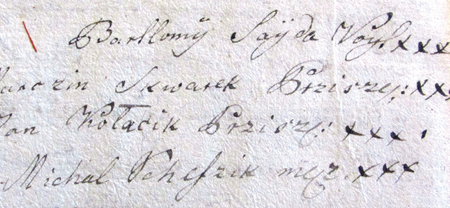 Bartlomÿ Saÿda Voyt xxx
arczin Skwarek Prziszę: xx
Jan Kołacik Prziszę: xxx.
Michal Schefzik męz. xxx